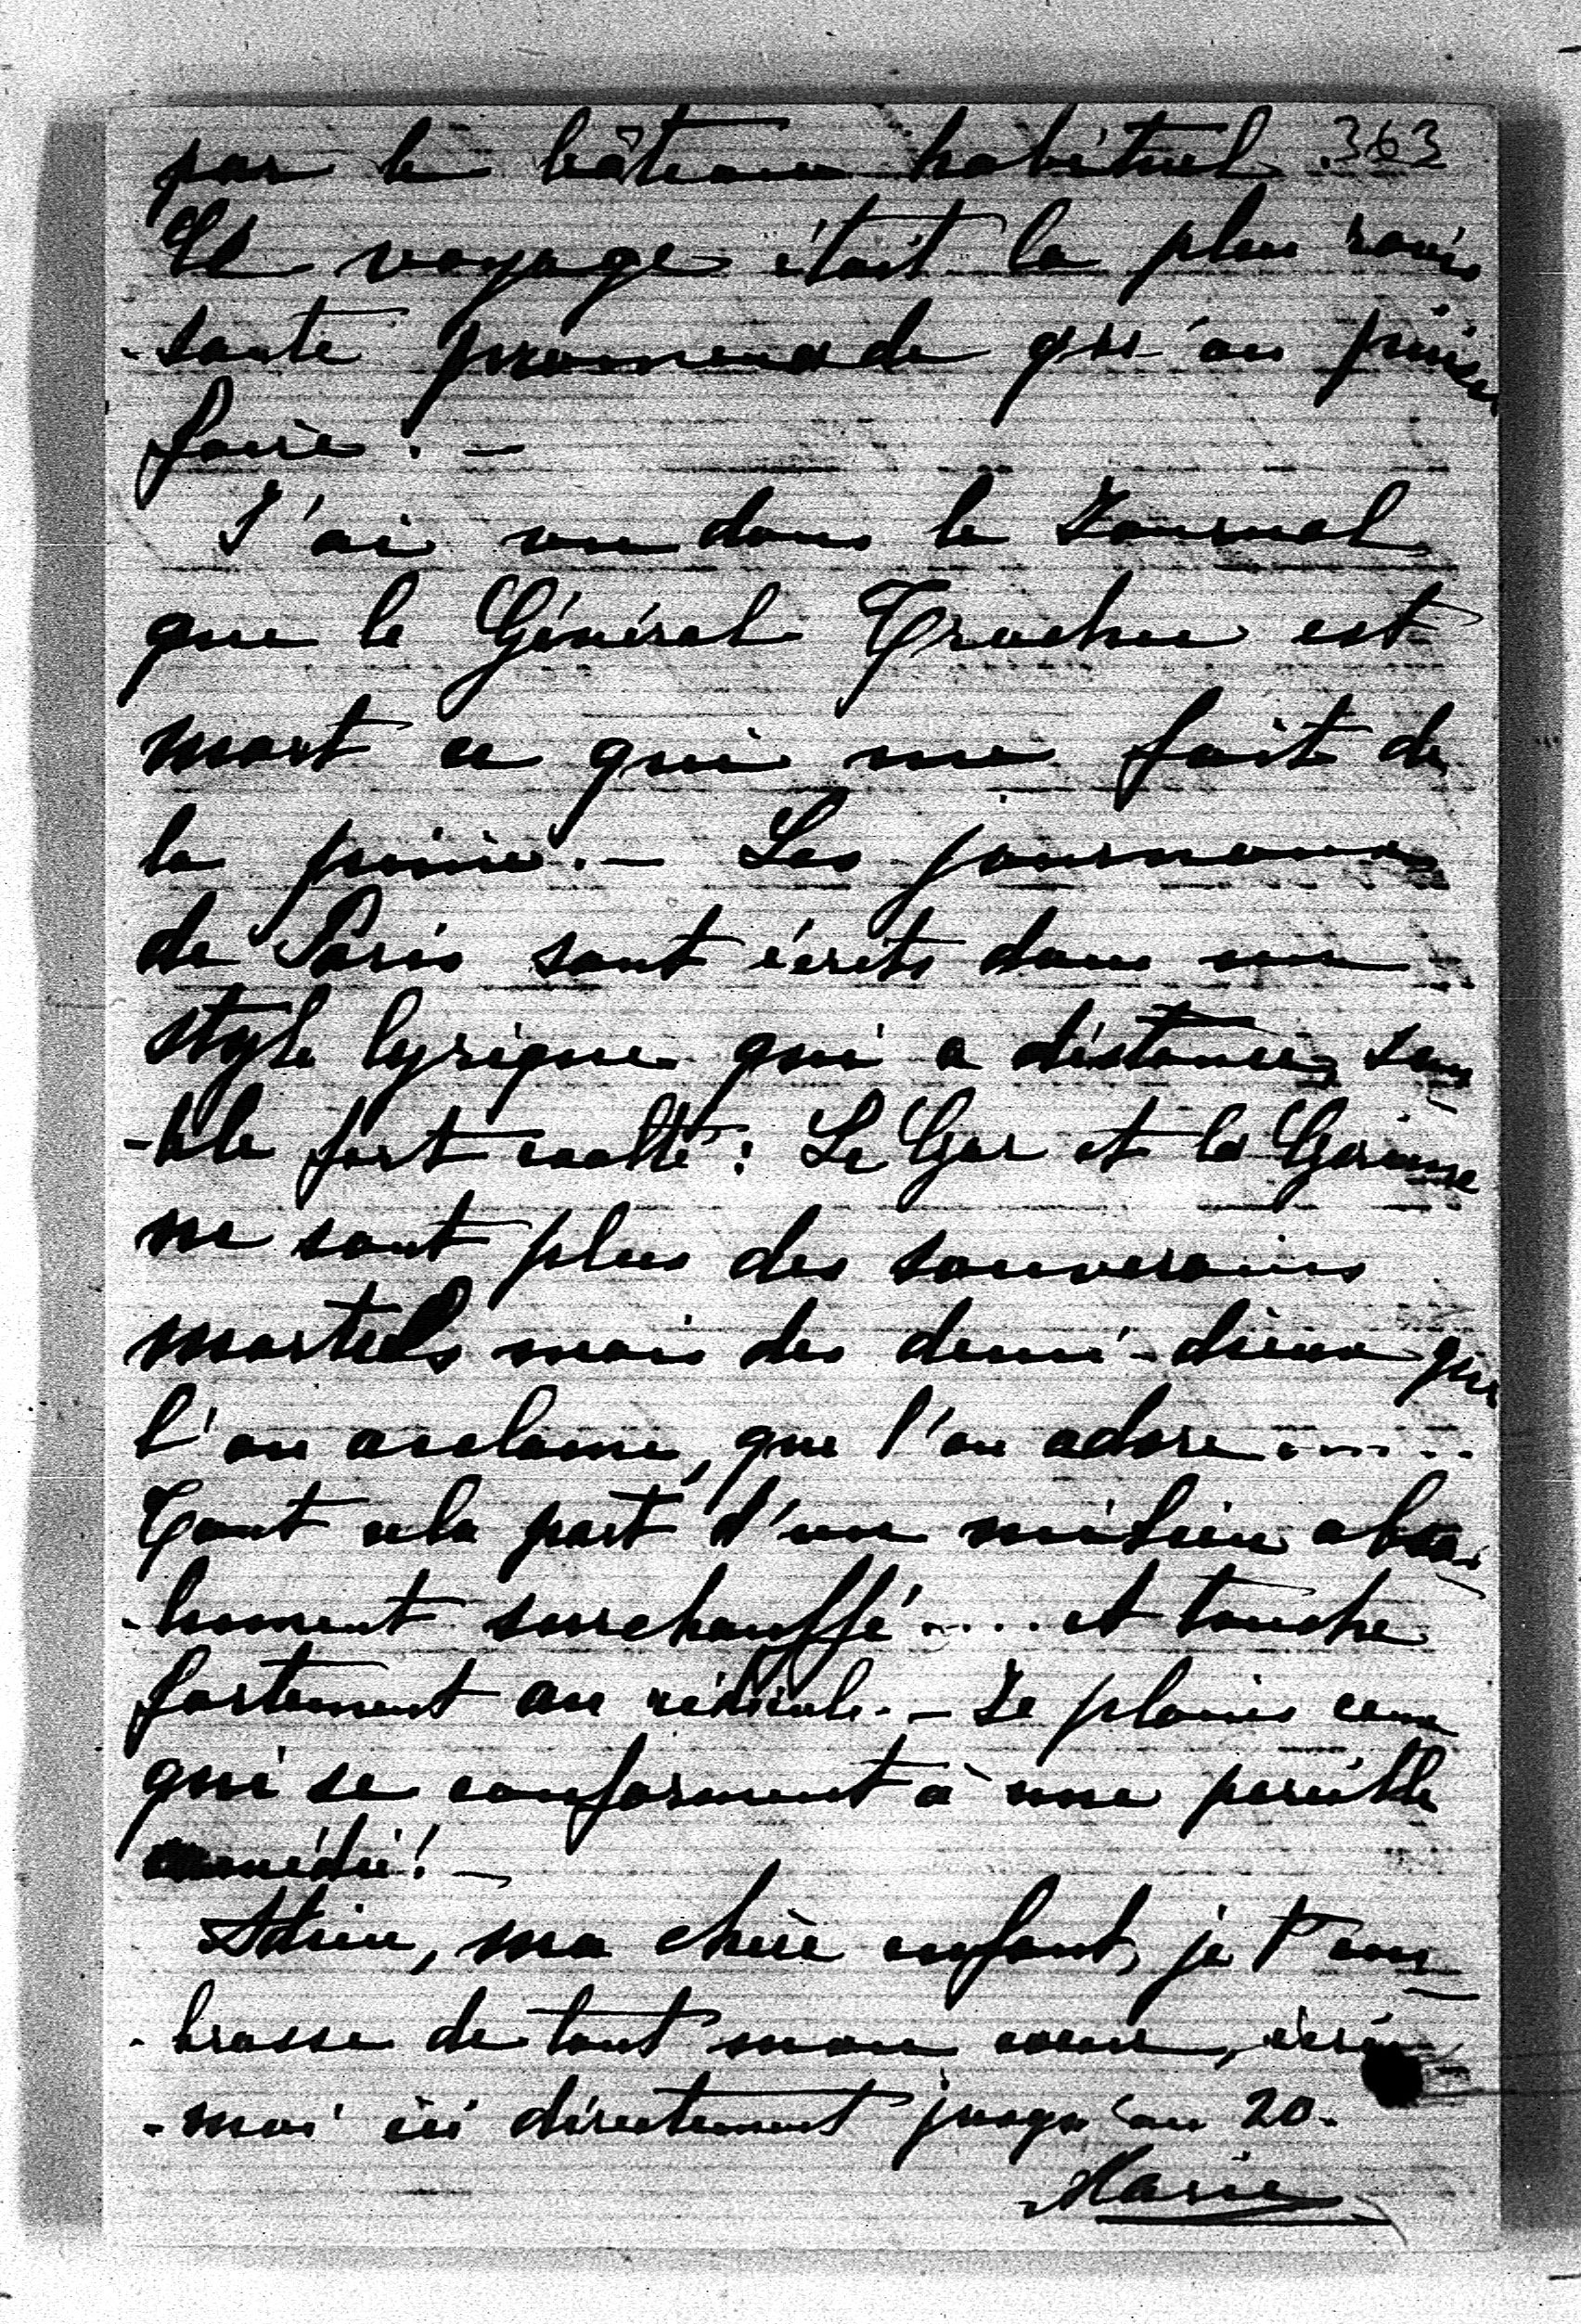 par le bâteau habituel. 363
Le voyage était la plus ravis
-sante promenade qu'on puisse
faire. -
J'ai vu dans le Journal
que le Général Trochu est
mort ce qui me fait de
la peine. - Les journaux
de Paris sont écrits dans un
style lyrique qui a distance, sem
-ble fort exalté: Le Czar et la Czarine
ne sont plus des souverains
mortels mais des demi-dieux que
l'on acclame, que l'on adore ......
Tout cela part d'un milieu
surchauffé .... et touche
fortement au ridicule. - Je plains ceux
qui se conforment à une pareille
comédie! -
Adieu, ma chère enfant, je t'em
-brasse de tout mon cœur, écris
-moi ici directement jusqu'au 20.
Marie